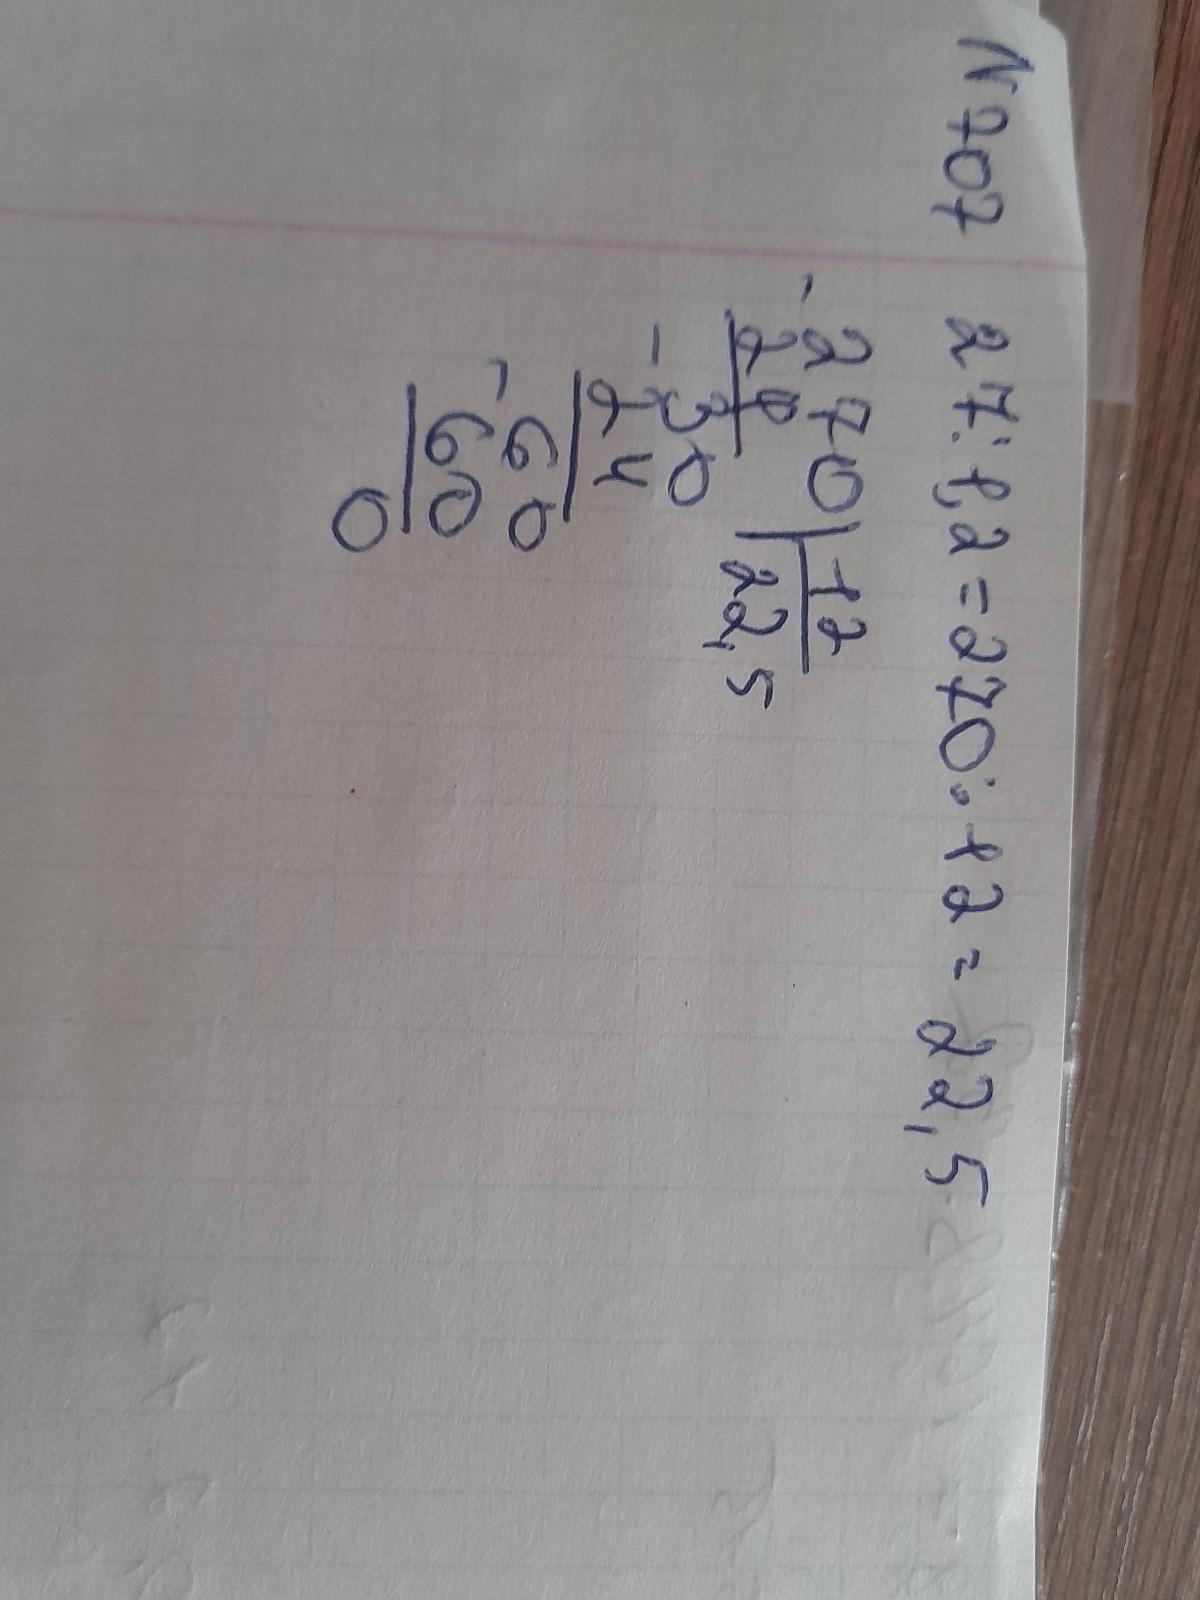 N 707 27:1,2=270:12=22,5
-270|12
24 22,5
-30
24
-60
60
0